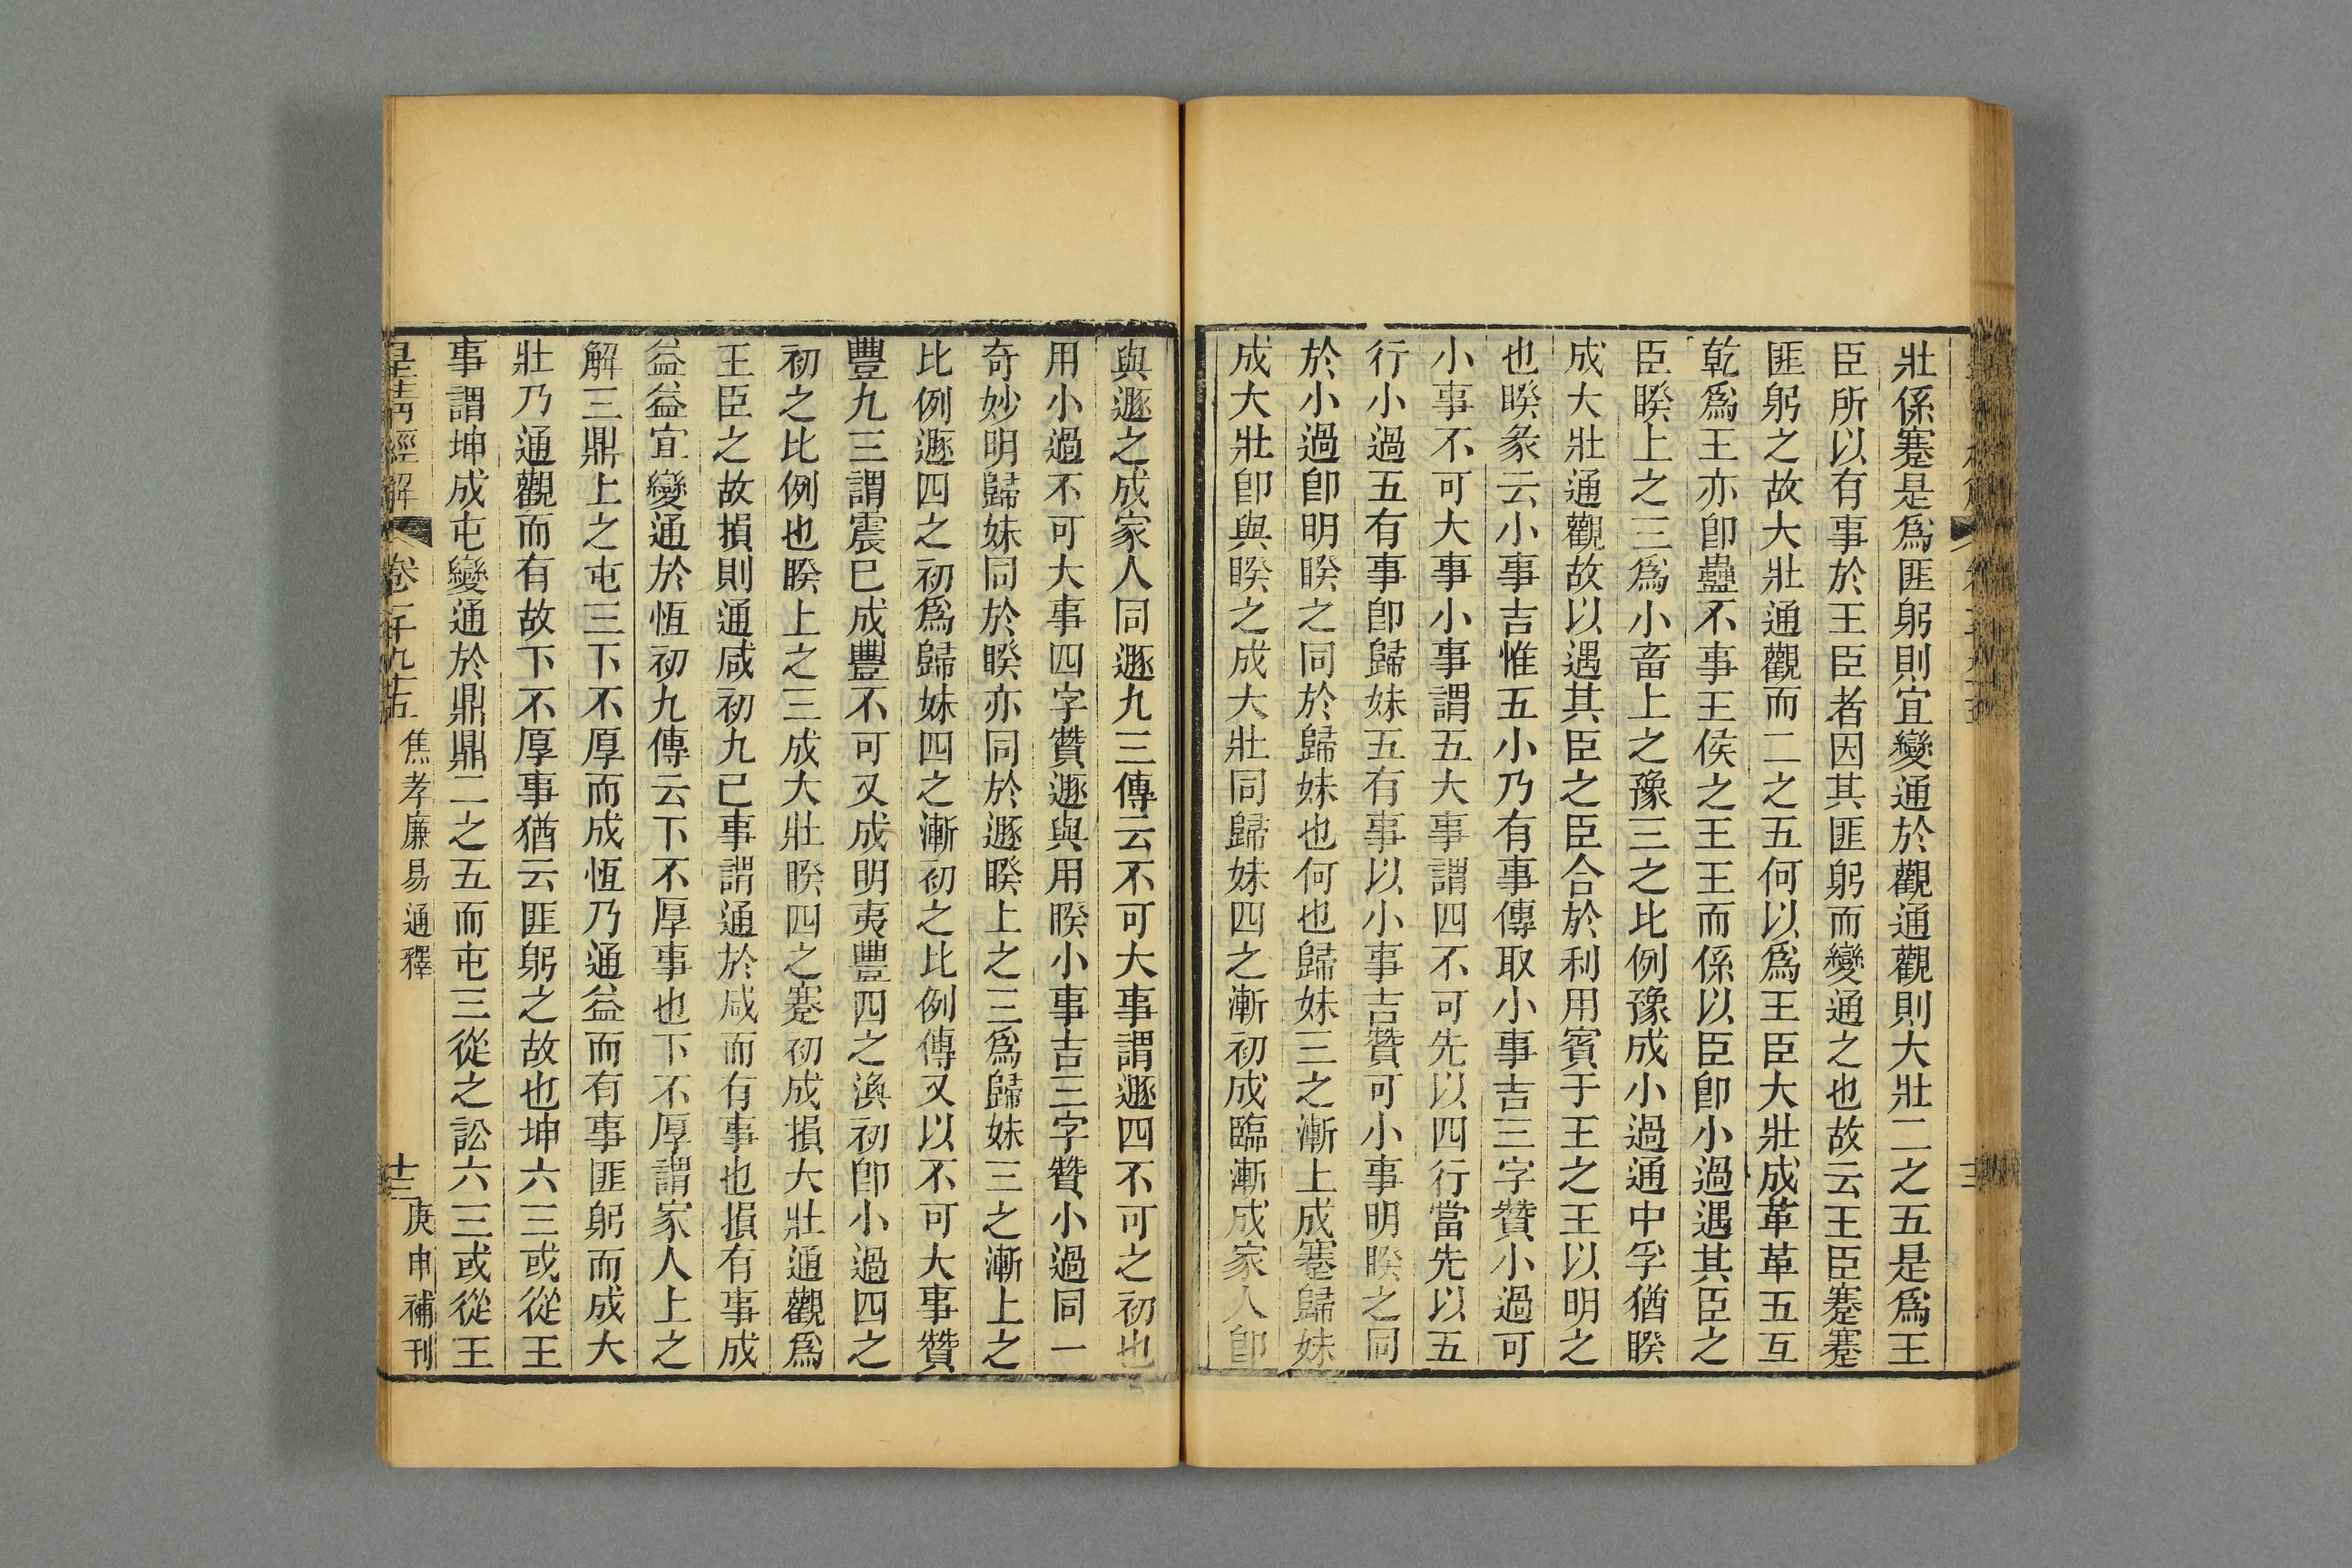 壯係蹇是爲匪躬則宜變通於觀通觀則大壯二之五是爲王
臣所以有事於王臣者因其匪躬而變通之也故云王臣蹇蹇
匪躬之故大壯通觀而二之五何以爲王臣大壯成革革五互
乾爲王亦卽蠱不事王侯之王王而係以臣卽小過遇其臣之
臣睽上之三爲小畜上之豫三之比例豫成小過通中孚猶睽
成大壯通觀故以遇其臣之臣合於利用賓于王之王以明之
也睽彖云小事吉惟五小乃有事傳取小事吉三字贊小過可
小事不可大事小事謂五大事謂四不可先以四行當先以五
行小過五有事卽歸妹五有事以小事吉贊可小事明睽之同
於小過卽明睽之同於歸妹也何也歸妹三之漸上成蹇歸妹
成大壯卽與睽之成大壯同歸妹四之漸初成臨漸成家人卽
與遯之成家人同遯九三傳云不可大事謂遯四不可之初也
用小過不可大事四字贊遯與用睽小事吉三字贊小過同一
奇妙明歸妹同於睽亦同於遯睽上之三爲歸妹三之漸上之
比例遯四之初爲歸妹四之漸初之比例傳又以不可大事贊
豐九三謂震巳成豐不可又成明夷豐四之渙初卽小過四之
初之比例也睽上之三成大壯睽四之蹇初成損大壯通觀爲
王臣之故損則通咸初九已事謂通於咸而有事也損有事成
益益宜變通於恆初九傳云下不厚事也下不厚謂家人上之
解三鼎上之屯三下不厚而成恆乃通益而有事匪躬而成大
壯乃通觀而有故下不厚事猶云匪躬之故也坤六三或從王
事謂坤成屯變通於鼎鼎二之五而屯三從之訟六三或從王
皇清經解 卷一千九十五 焦孝廉易通釋 十三 庚申補刊